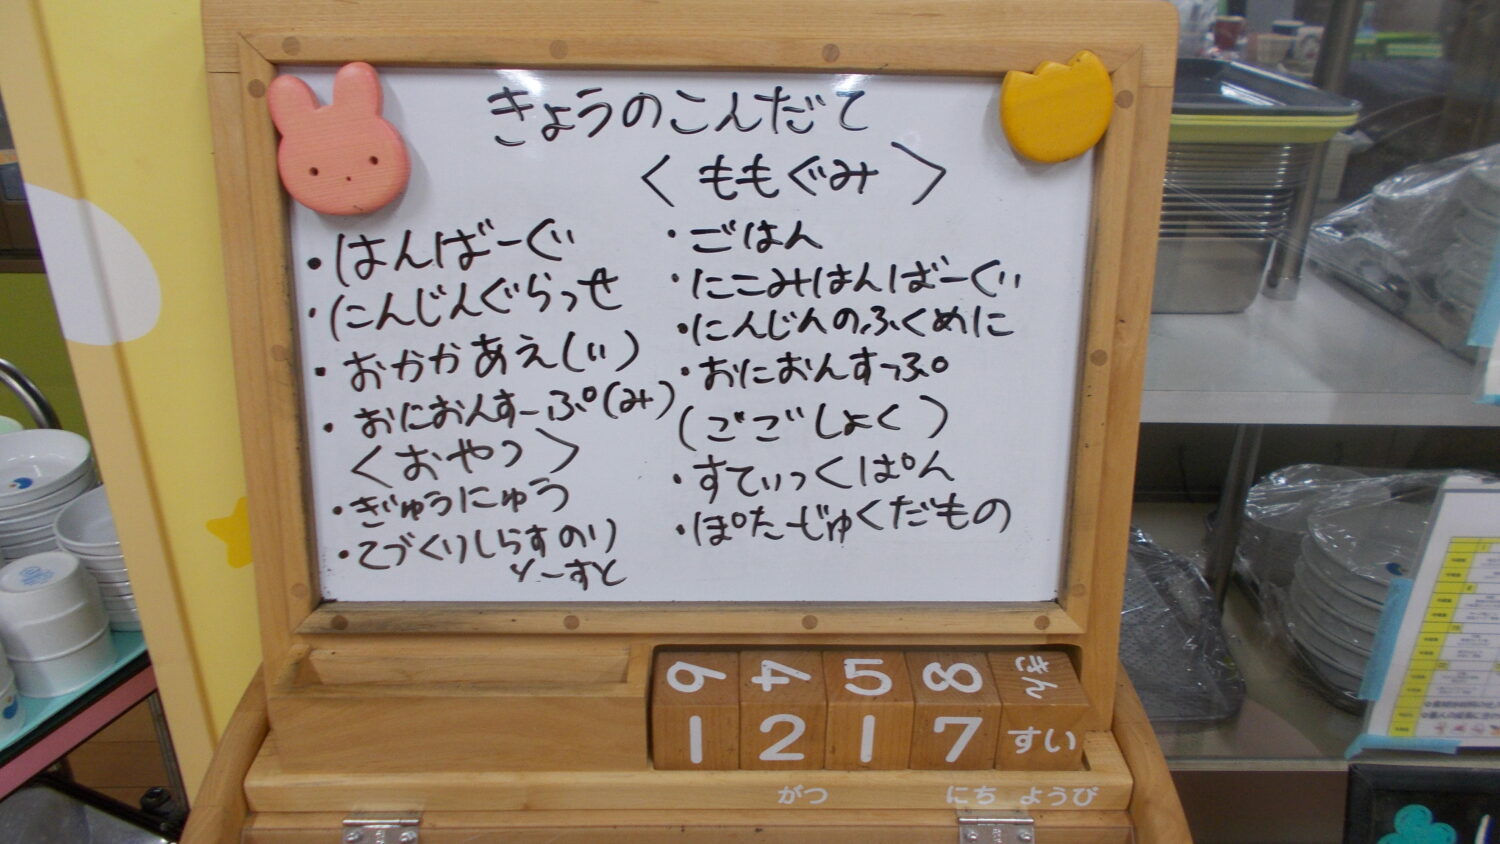 きょうのこんだて
〈ももぐみ〉
・はんばーぐ
・にんじんぐらっせ
・おかかあえ(い)
・おにおんすーぷ(み)
〈おやつ〉
・ぎゅうにゅう
・てづくりしらすのり
とーすと
・ごはん
・にこみはんばーぐ
・にんじんのふくめに
・おにおんすっぷ
(ごごしょく)
・すてぃっくぱん
・ぽたーじゅくだもの
6 4 5 8 きん
1 2 1 7 すい
がつ にち ようび